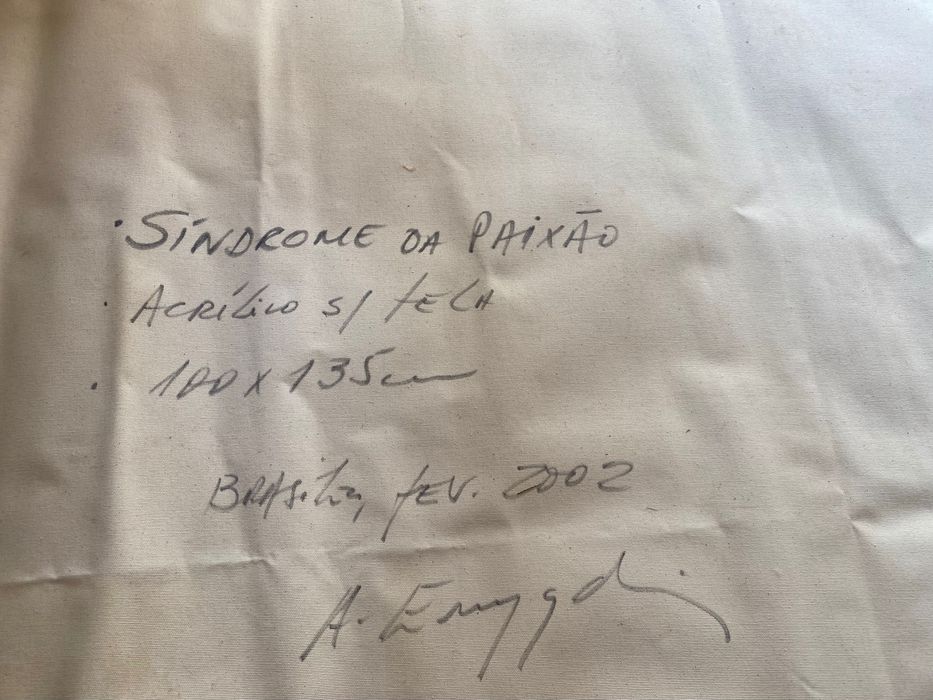 · SÍNDROME DA PAIXÃO
· ACRÍLICO S/ TELA
· 100 X 135cm
BRASÍLIA, FEV. 2002
A. Emygdio